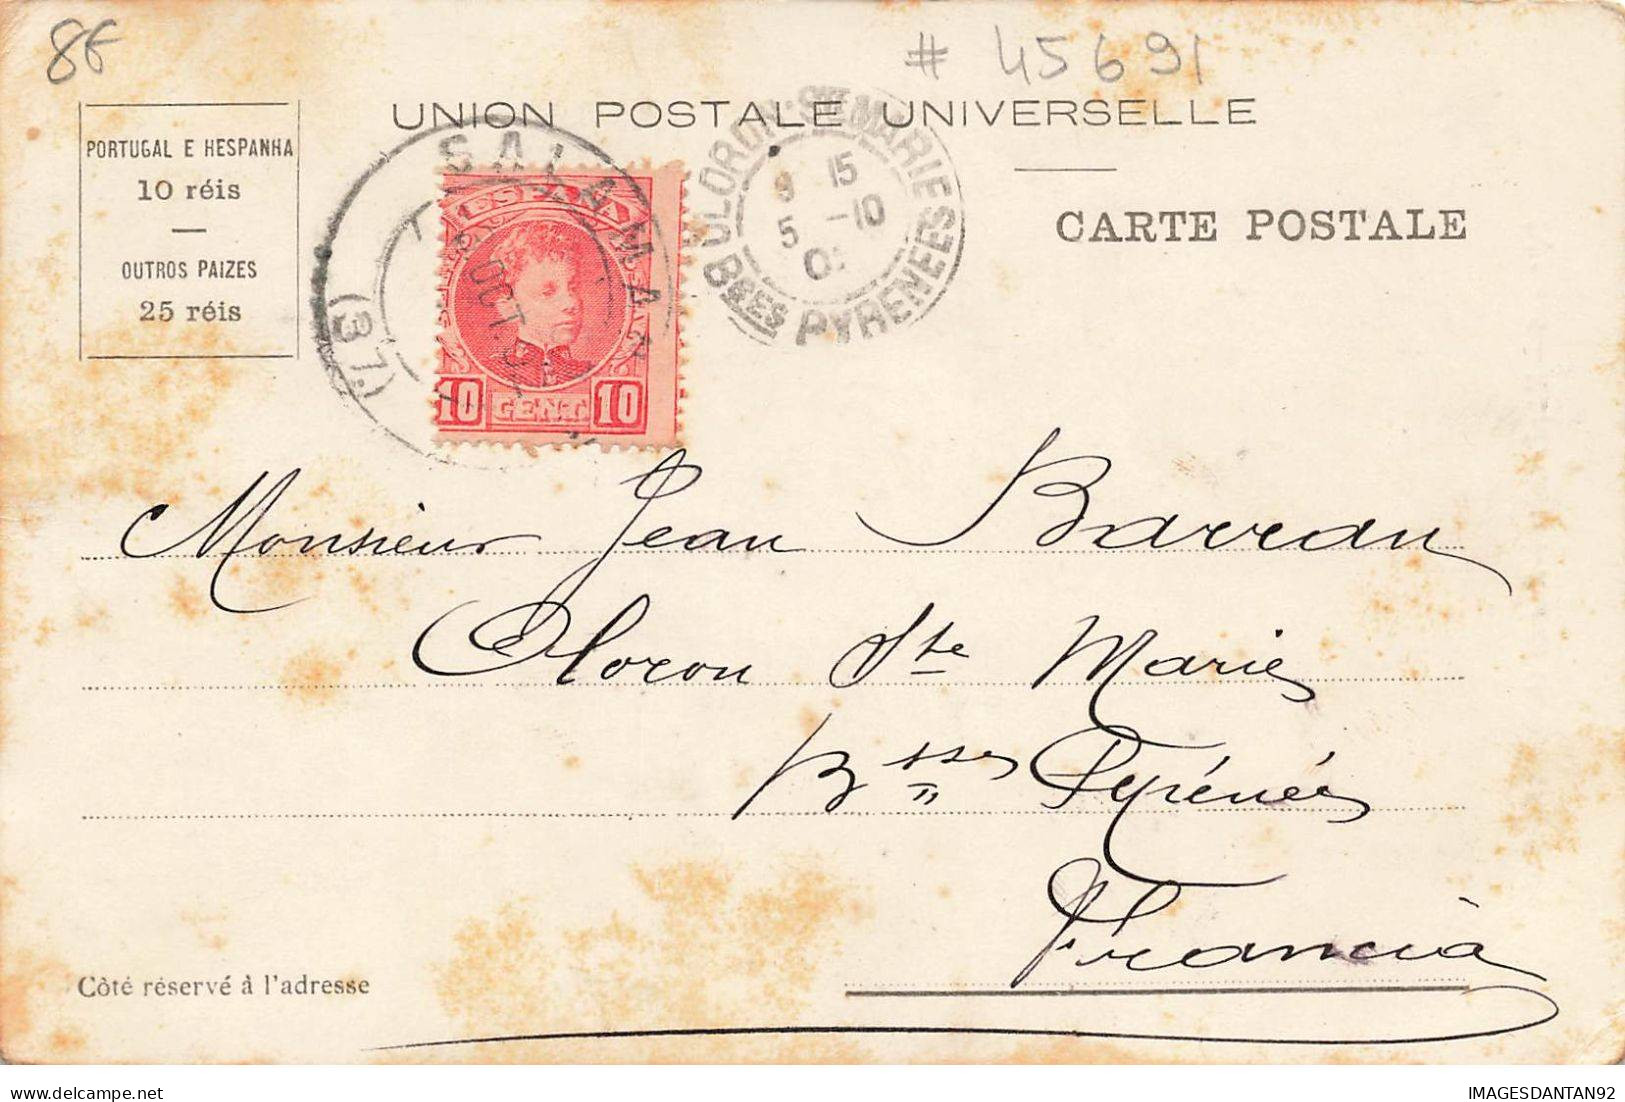 8€
# 45691
UNION POSTALE UNIVERSELLE
PORTUGAL E HESPANHA
10 réis
OUTROS PAIZES
25 réis
SALAMANCA
OCT.
(37)
ESPAÑA
10 CENT. 10
OLORON-STE MARIE
8 15
5 -10
BSES PYRENEES
CARTE POSTALE
Monsieur Jean Barran
Oloron Ste Marie
Bsses Pyrénées
Francia
Côté réservé à l'adresse
IMAGESDANTAN92
delcampe.net